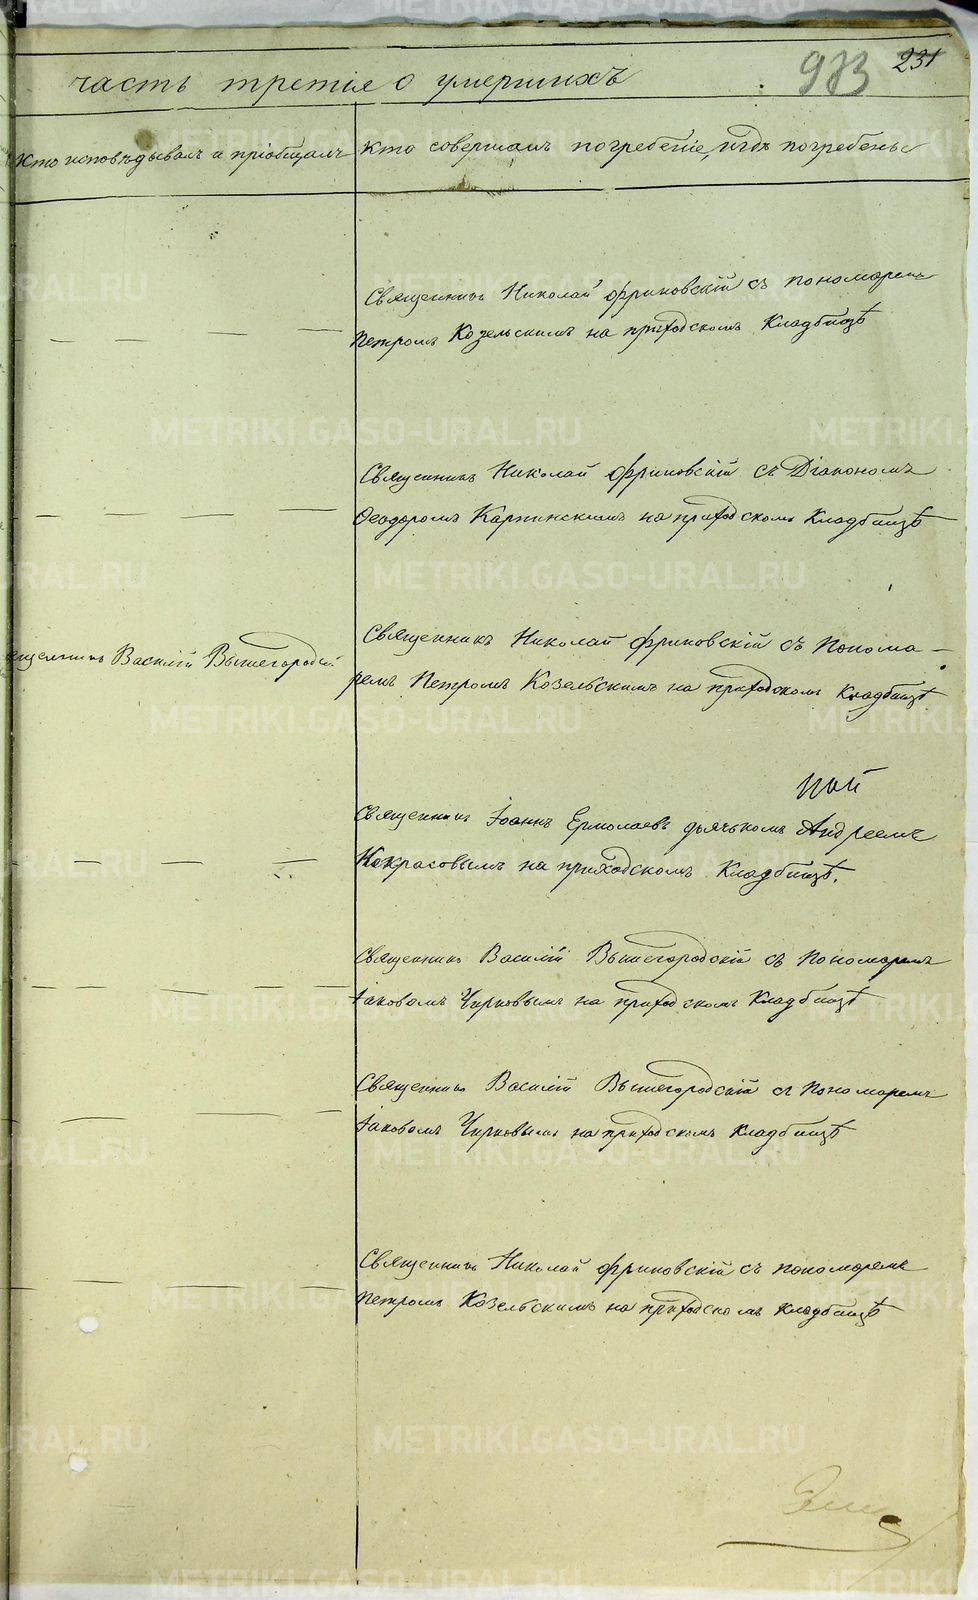 часть третія о умершихъ
983 231
Кто исповѣдывалъ и пріобщалъ
Кто совершалъ погребеніе, и гдѣ погребены
Священникъ Николай Фриковскій съ пономаремъ
Петромъ Козельскимъ на приходскомъ Кладбищѣ
Священникъ Николай Фриковскій съ Діакономъ
Ѳеодоромъ Карпинскимъ на приходскомъ Кладбищѣ
Священникъ Николай Фриковскій съ Понома-
ремъ Петромъ Козельскимъ на приходскомъ Кладбищѣ
ященникъ Василій Вышегородскій
Священникъ Іоаннъ Ермолаевъ дьячкомъ Андреемъ
Некрасовымъ на приходскомъ Кладбищѣ.
Священникъ Василій Вышегородскій съ Пономаремъ
Іаковомъ Чирковымъ на приходскомъ Кладбищѣ
Священникъ Василій Вышегородскій съ Пономаремъ
Іаковомъ Чирковымъ на приходскомъ Кладбищѣ
Священникъ Николай Фриковскій съ пономаремъ
Петромъ Козельскимъ на приходскомъ Кладбищѣ
METRIKI.GASO-URAL.RU